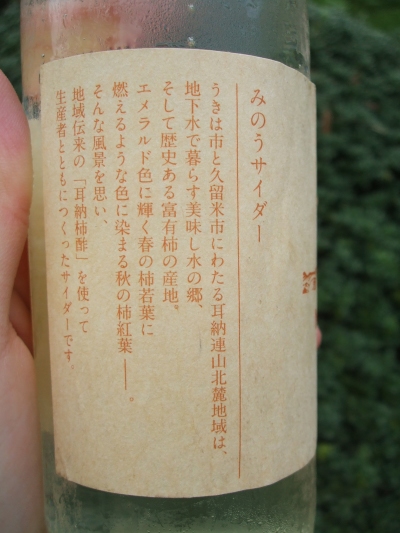 みのうサイダー
うきは市と久留米市にわたる耳納連山北麓地域は、
地下水で暮らす美味し水の郷、
そして歴史ある富有柿の産地。
エメラルド色に輝く春の柿若葉に
燃えるような色に染まる秋の柿紅葉──。
そんな風景を思い、
地域伝来の「耳納柿酢」を使って
生産者とともにつくったサイダーです。